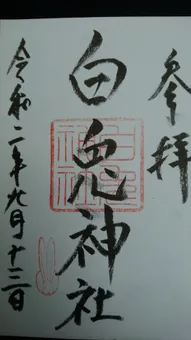 参拝
白兎神社
令和二年九月十三日